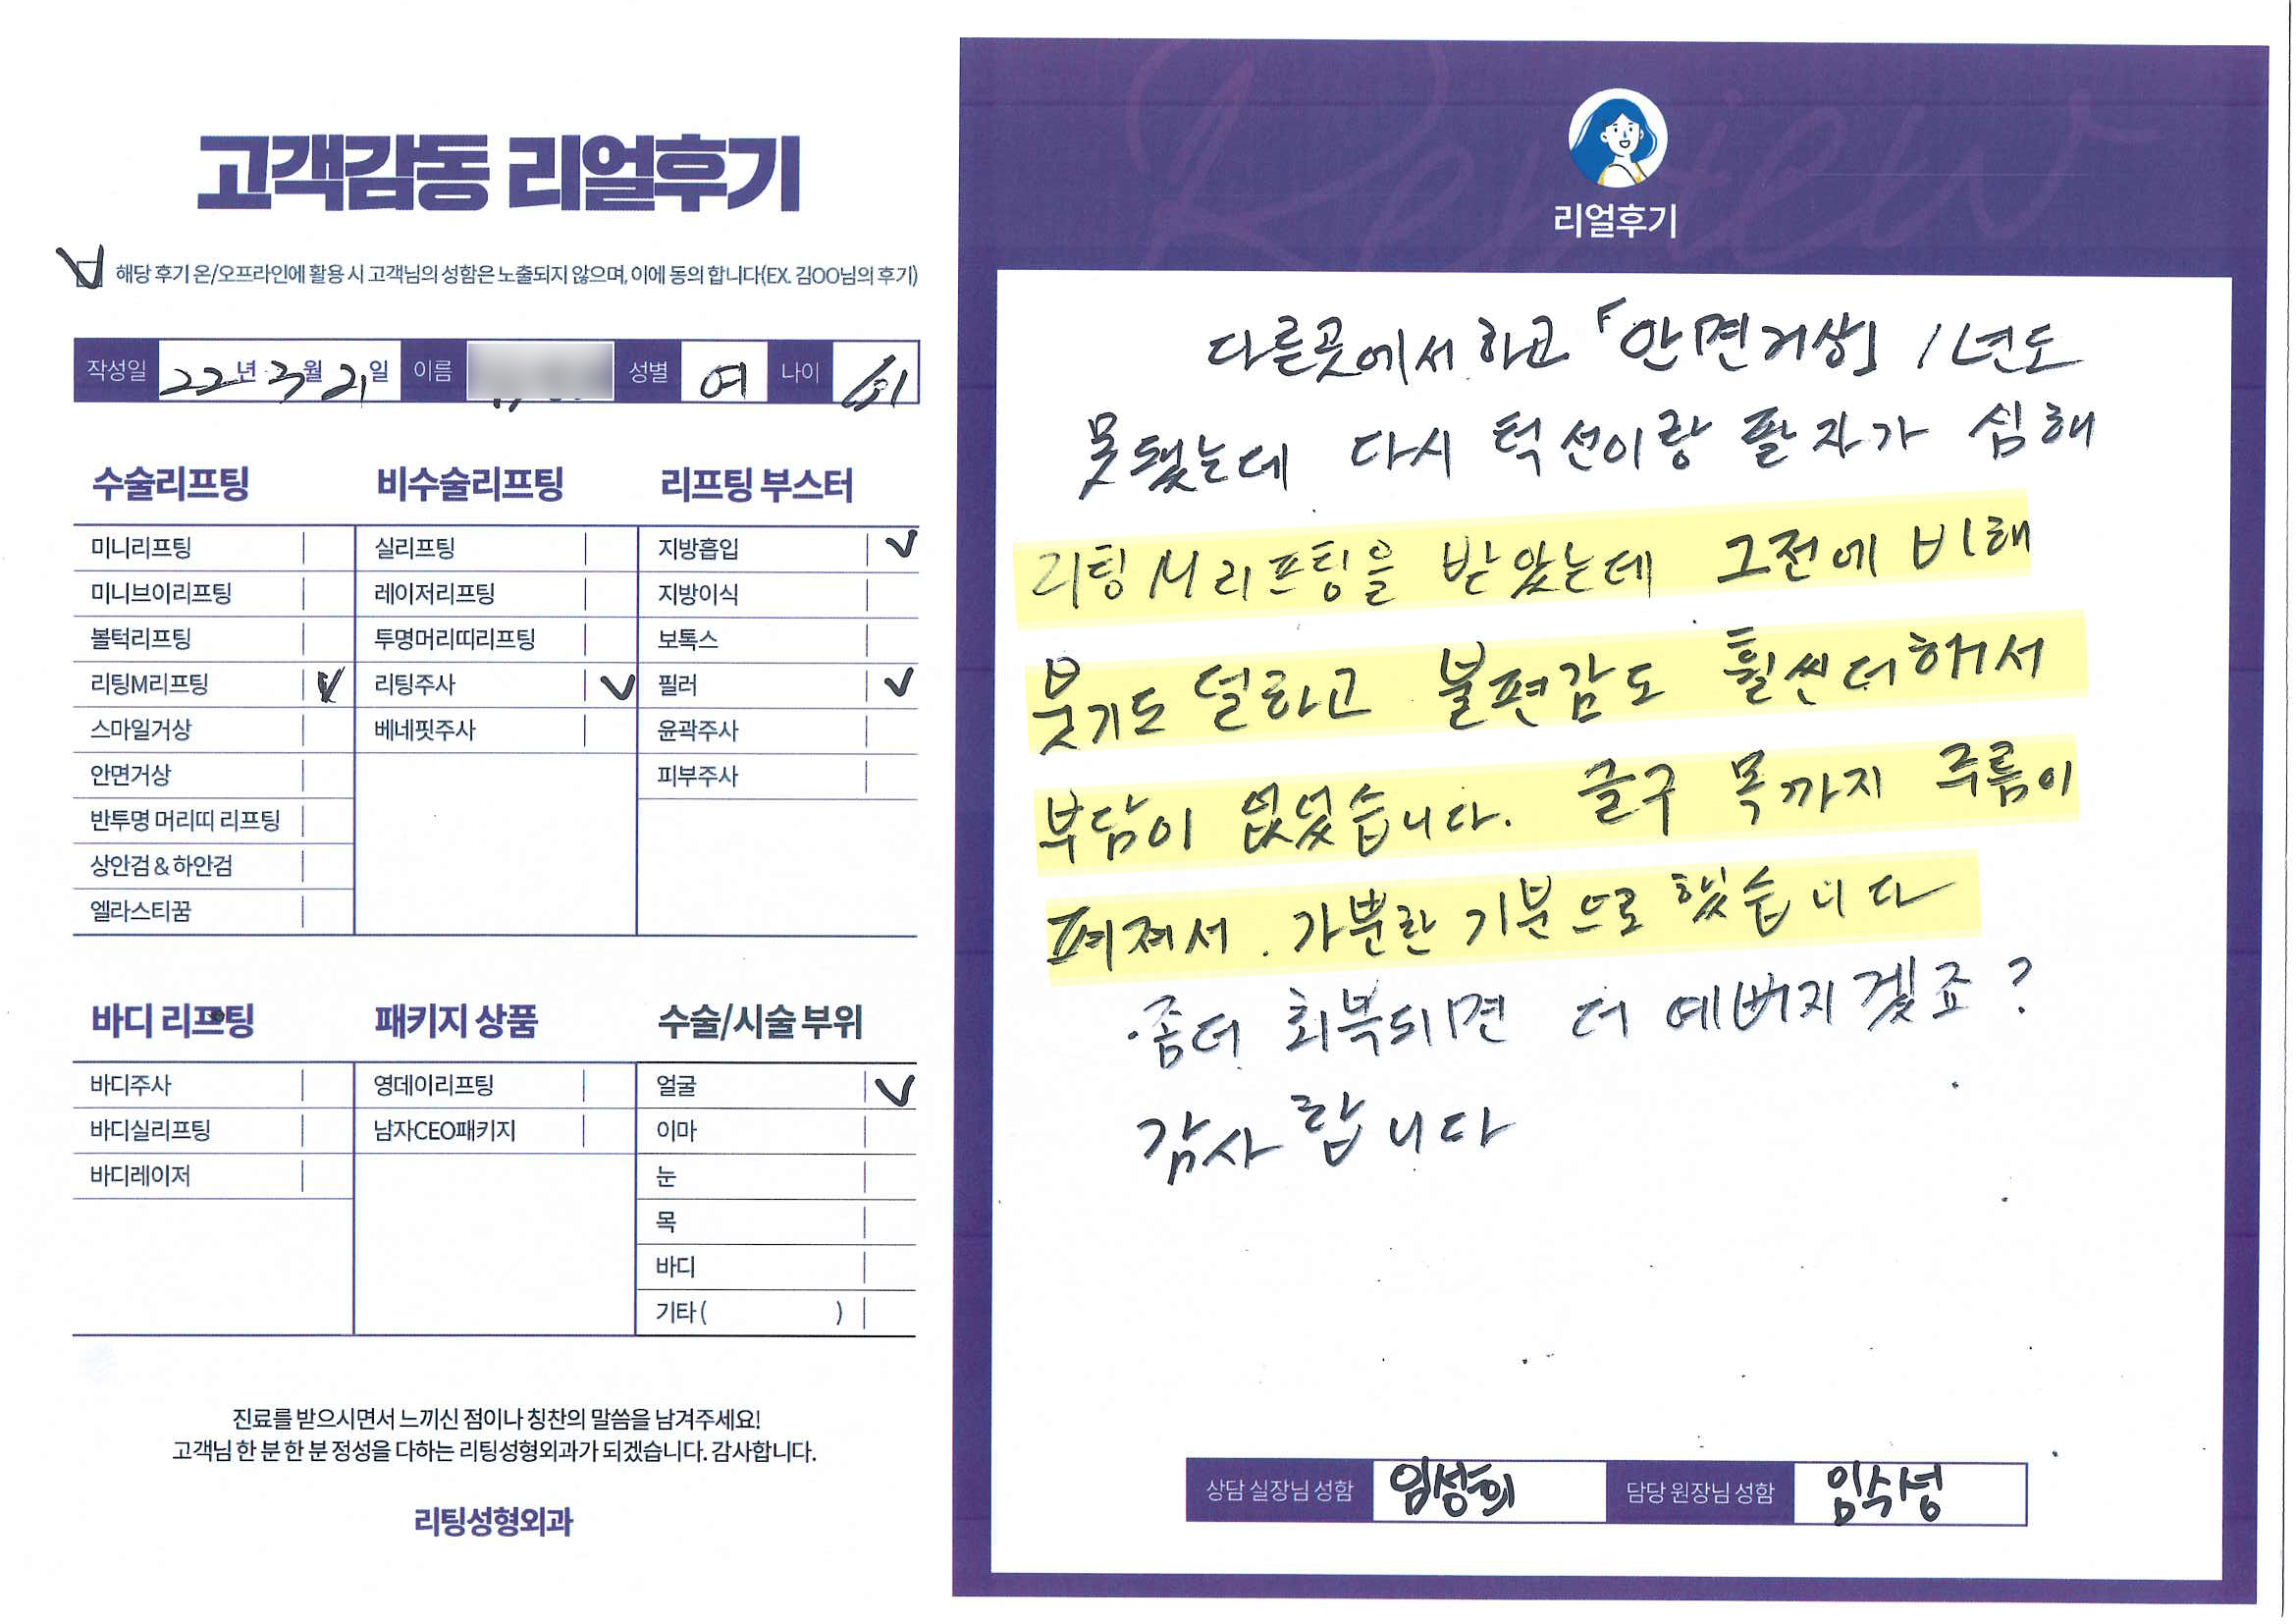 고객감동 리얼후기
해당 후기 온/오프라인에 활용 시 고객님의 성함은 노출되지 않으며, 이에 동의 합니다(EX. 김OO님의 후기)
작성일 22년 3월 21일 이름 성별 여 나이 61
수술리프팅
미니리프팅
미니브이리프팅
볼턱리프팅
리팅M리프팅
스마일거상
안면거상
반투명 머리띠 리프팅
상안검 & 하안검
엘라스티꿈
비수술리프팅
실리프팅
레이저리프팅
투명머리띠리프팅
리팅주사
베네핏주사
리프팅 부스터
지방흡입
지방이식
보톡스
필러
윤곽주사
피부주사
바디 리프팅
바디주사
바디실리프팅
바디레이저
패키지 상품
영데이리프팅
남자CEO패키지
수술/시술 부위
얼굴
이마
눈
목
바디
기타 ( )
진료를 받으시면서 느끼신 점이나 칭찬의 말씀을 남겨주세요!
고객님 한 분 한 분 정성을 다하는 리팅성형외과가 되겠습니다. 감사합니다.
리팅성형외과
Review
리얼후기
다른곳에서 하고 「안면거상」 1년도
못됐는데 다시 턱선이랑 팔자가 심해
리팅M리프팅을 받았는데 그전에 비해
붓기도 덜하고 불편감도 훨씬더해서
부담이 없었습니다. 글구 목까지 주름이
펴져서. 가뿐한 기분으로 했습니다
좀더 회복되면 더 예뻐지겠죠?
감사합니다
상담 실장님 성함 임성희 담당 원장님 성함 임수성